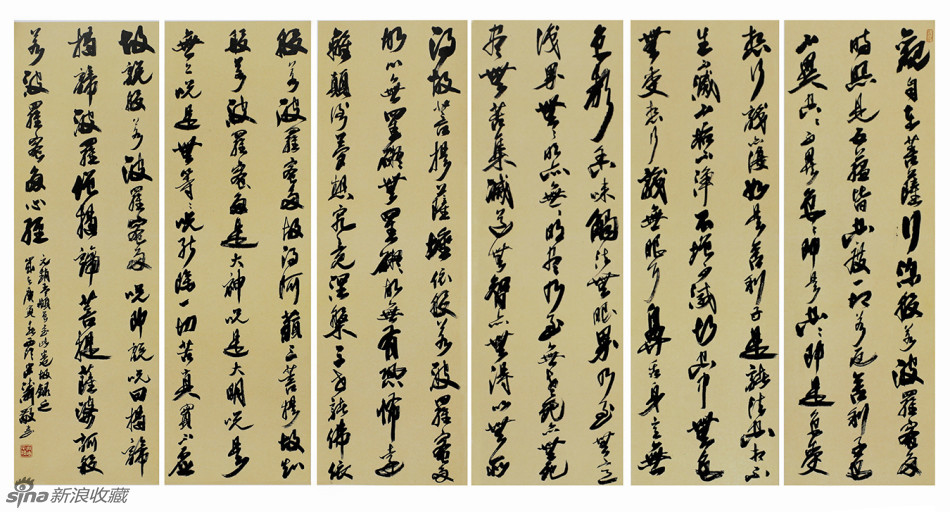 觀自在菩薩行深般若波羅蜜多
時照見五蘊皆空度一切苦厄舍利子色
不異空々不異色々即是空々即是色受
想行識亦復如是舍利子是諸法空相不
生不滅不垢不淨不增不減故空中無色
無受想行識無眼耳鼻舌身意無
色聲香味觸法無眼界乃至無意
識界無々明亦無々明盡乃至無老死亦無老死
盡無苦集滅道無智亦無得以無所
得故菩提薩埵依般若波羅蜜多
故心無罣礙無罣礙故無有恐怖遠
離顛倒夢想究竟涅槃三世諸佛依
般若波羅蜜多故得阿藐三菩提故知
般若波羅蜜多是大神咒是大明咒是
無上咒是無等々咒能除一切苦真實不虛
故說般若波羅蜜多咒即說咒曰揭諦
揭諦波羅僧揭諦菩提薩婆訶般
若波羅蜜多心經
sina新浪收藏